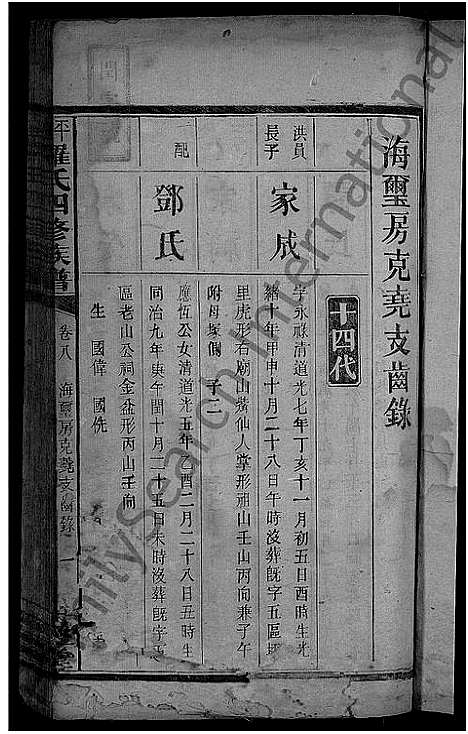 海璽房克堯支齒錄
十四代
洪員
長子
家成
字永祿清道光七年丁亥十一月初五日酉時生光
緒十年甲申十月二十八日午時沒葬既字五區
里虎形右廟山紫仙人掌形祖山壬山丙向兼子午
附母塚側 子二
配
鄧氏
應恆公女清道光五年乙酉二月二十八日丑時生
同治九年庚午閏十月二十五日未時沒葬既字五
區老山公祠金盆形丙山壬向
生 國偉 國侁
羅氏四修族譜
卷八 海璽房克堯支齒錄 一
FamilySearch International